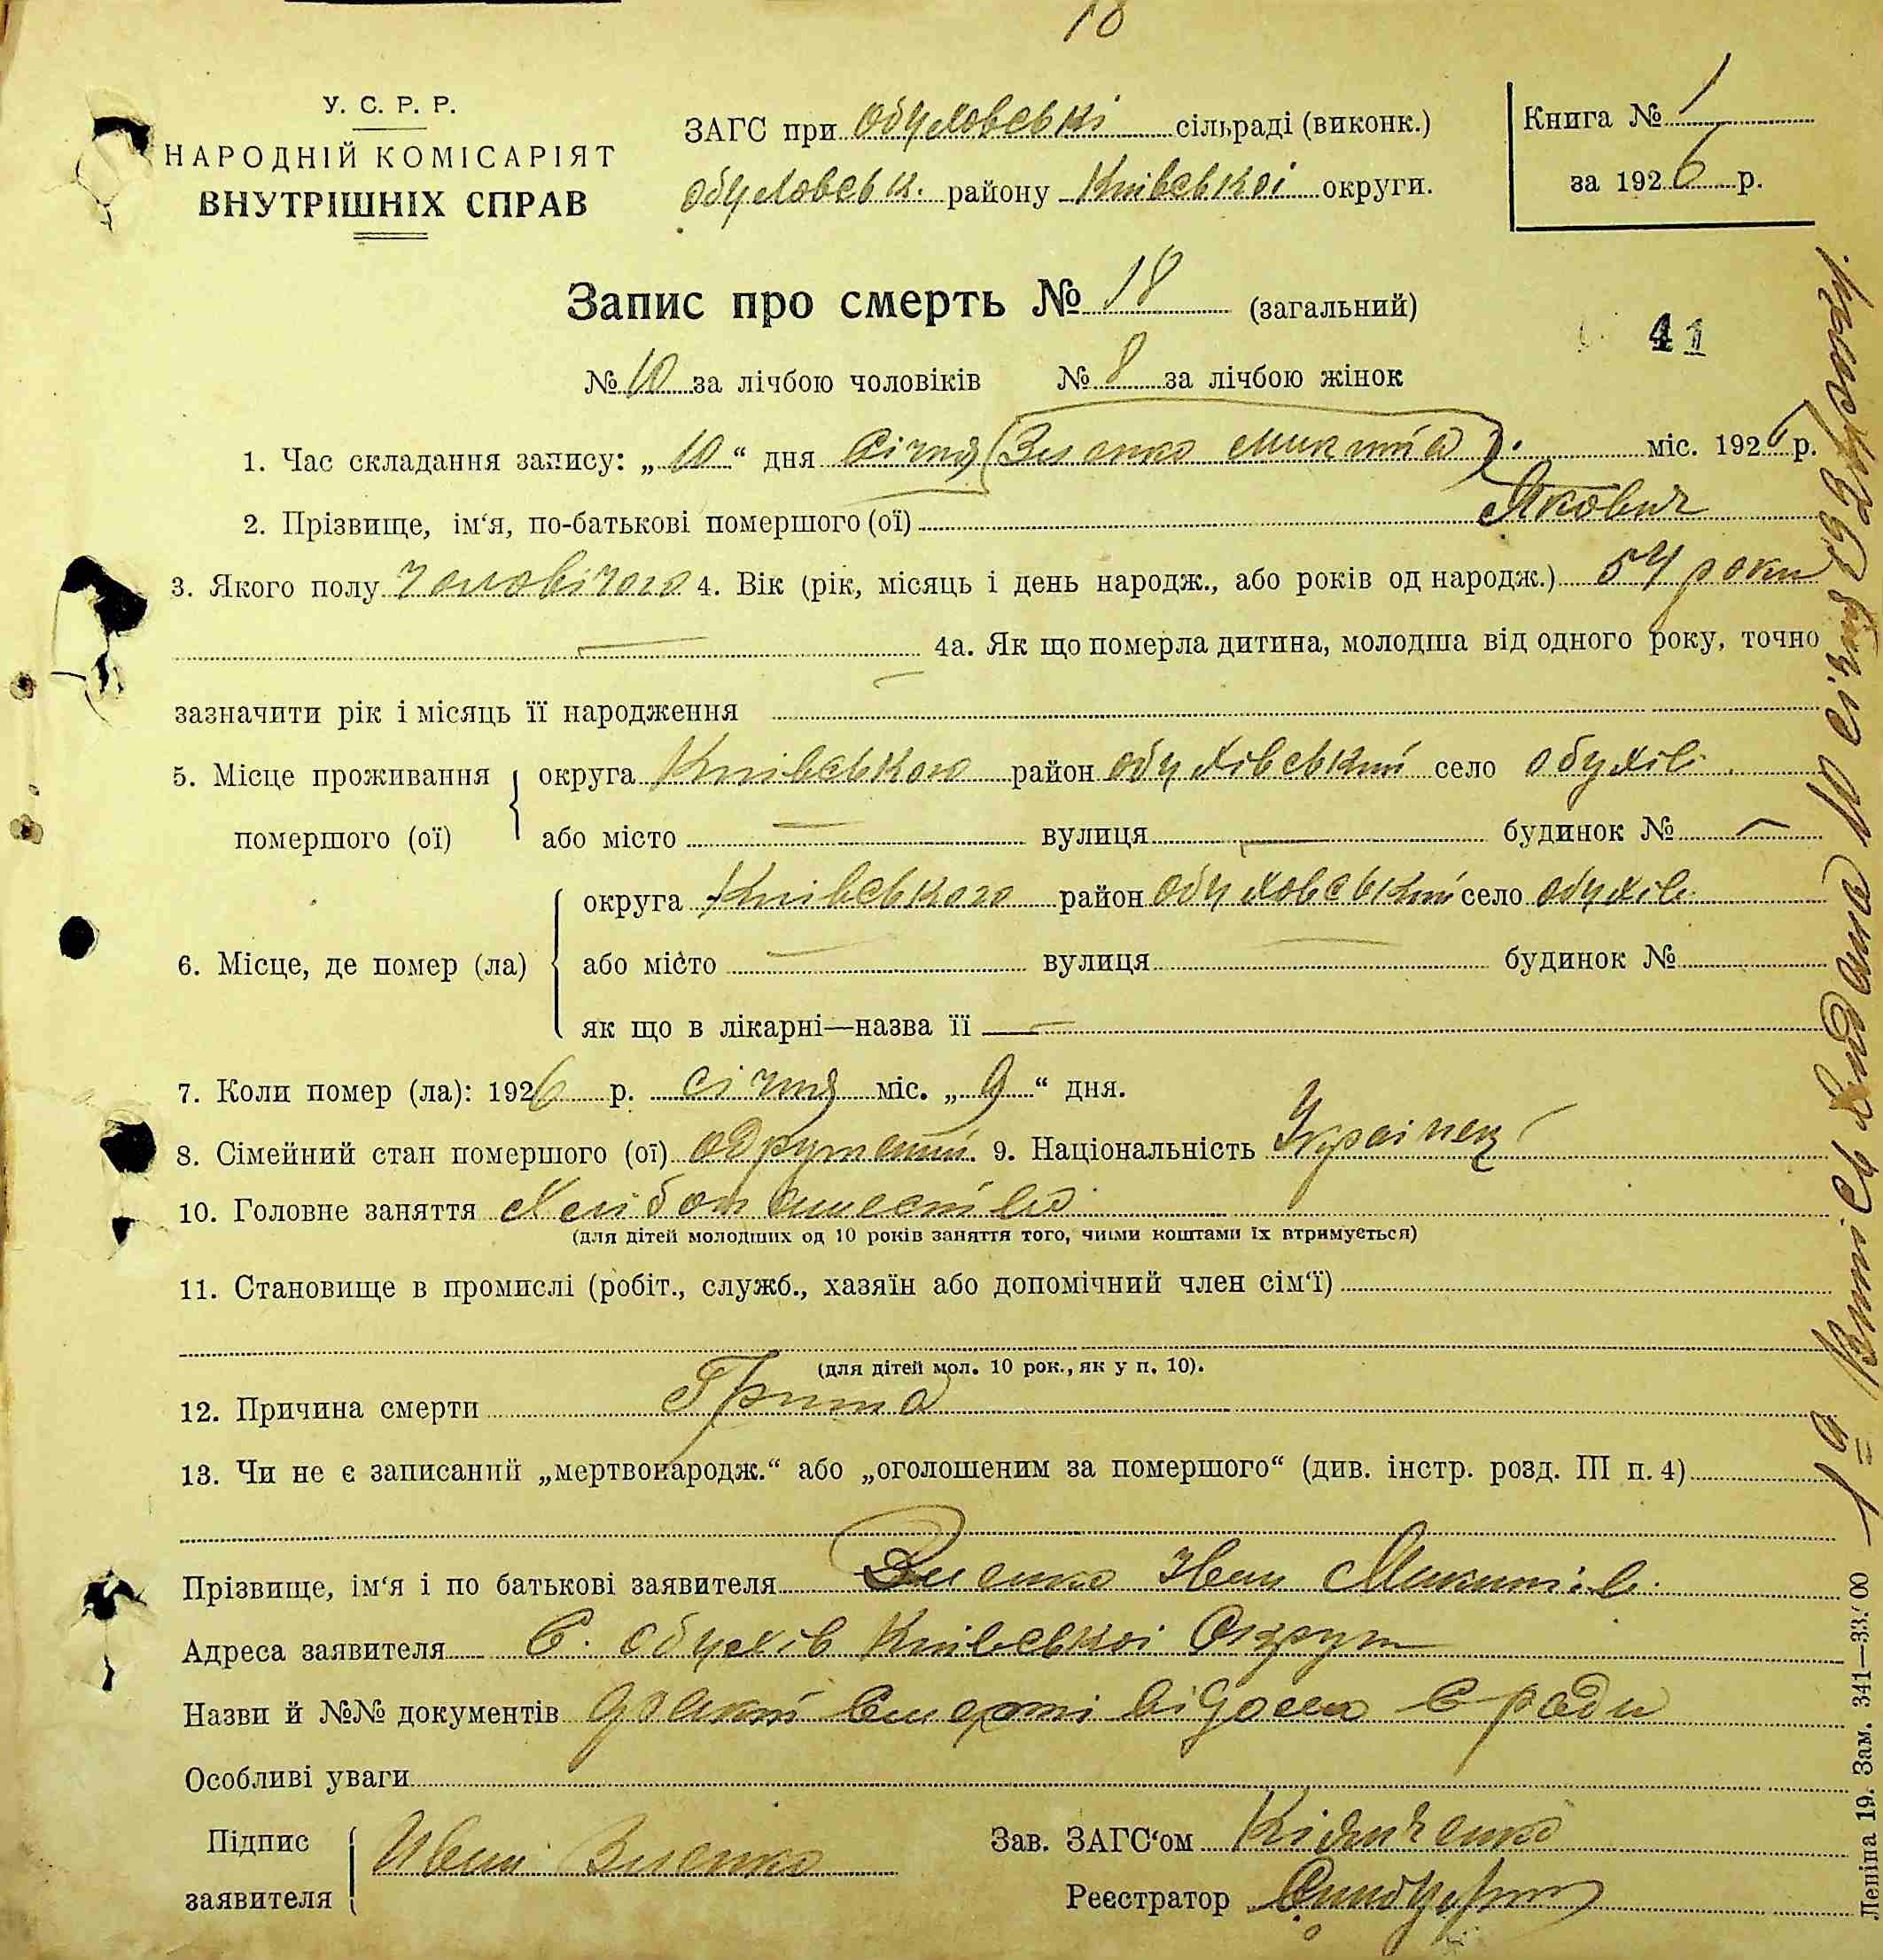 18
У. С. Р. Р.
НАРОДНІЙ КОМІСАРІЯТ
ВНУТРІШНІХ СПРАВ
ЗАГС при обуховській сільраді (виконк.)
обуховськ. району Київської округи.
Книга № 1
за 1926 р.
Запис про смерть № 18 (загальний)
41
№ 10 за лічбою чоловіків № 8 за лічбою жінок
1. Час складання запису: „10“ дня Січня (Зиенко Микита). міс. 1926 р.
2. Прізвище, ім‘я, по-батькові помершого (ої) Якович
3. Якого полу чоловічого 4. Вік (рік, місяць і день народж., або років од народж.) 54 роки
4а. Як що померла дитина, молодша від одного року, точно
зазначити рік і місяць її народження
5. Місце проживання помершого (ої) округа Київського район обухівський село обухів
або місто — вулиця — будинок № —
6. Місце, де помер (ла) округа Київського район обуховський село обухів
або місто — вулиця — будинок №
як що в лікарні—назва її —
7. Коли помер (ла): 1926 р. січня міс. „9“ дня.
8. Сімейний стан помершого (ої) одружений. 9. Національність Українец
10. Головне заняття
(для дітей молодших од 10 років заняття того, чиїми коштами їх втримується)
11. Становище в промислі (робіт., служб., хазяїн або допомічний член сім‘ї)
(для дітей мол. 10 рок., як у п. 10).
12. Причина смерти Грипа
13. Чи не є записаний „мертвонародж.“ або „оголошеним за помершого“ (див. інстр. розд. III п. 4)
Прізвище, ім‘я і по батькові заявителя Зиенко Иван Микитів.
Адреса заявителя С. обухів Київської Округи
Назви й №№ документів смерті відома С ради
Особливі уваги
Підпис заявителя Иван Зиенко
Зав. ЗАГС‘ом
Реєстратор
Випись видана 10 січня 1926 року.
Леніна 19. Зам. 341—33.